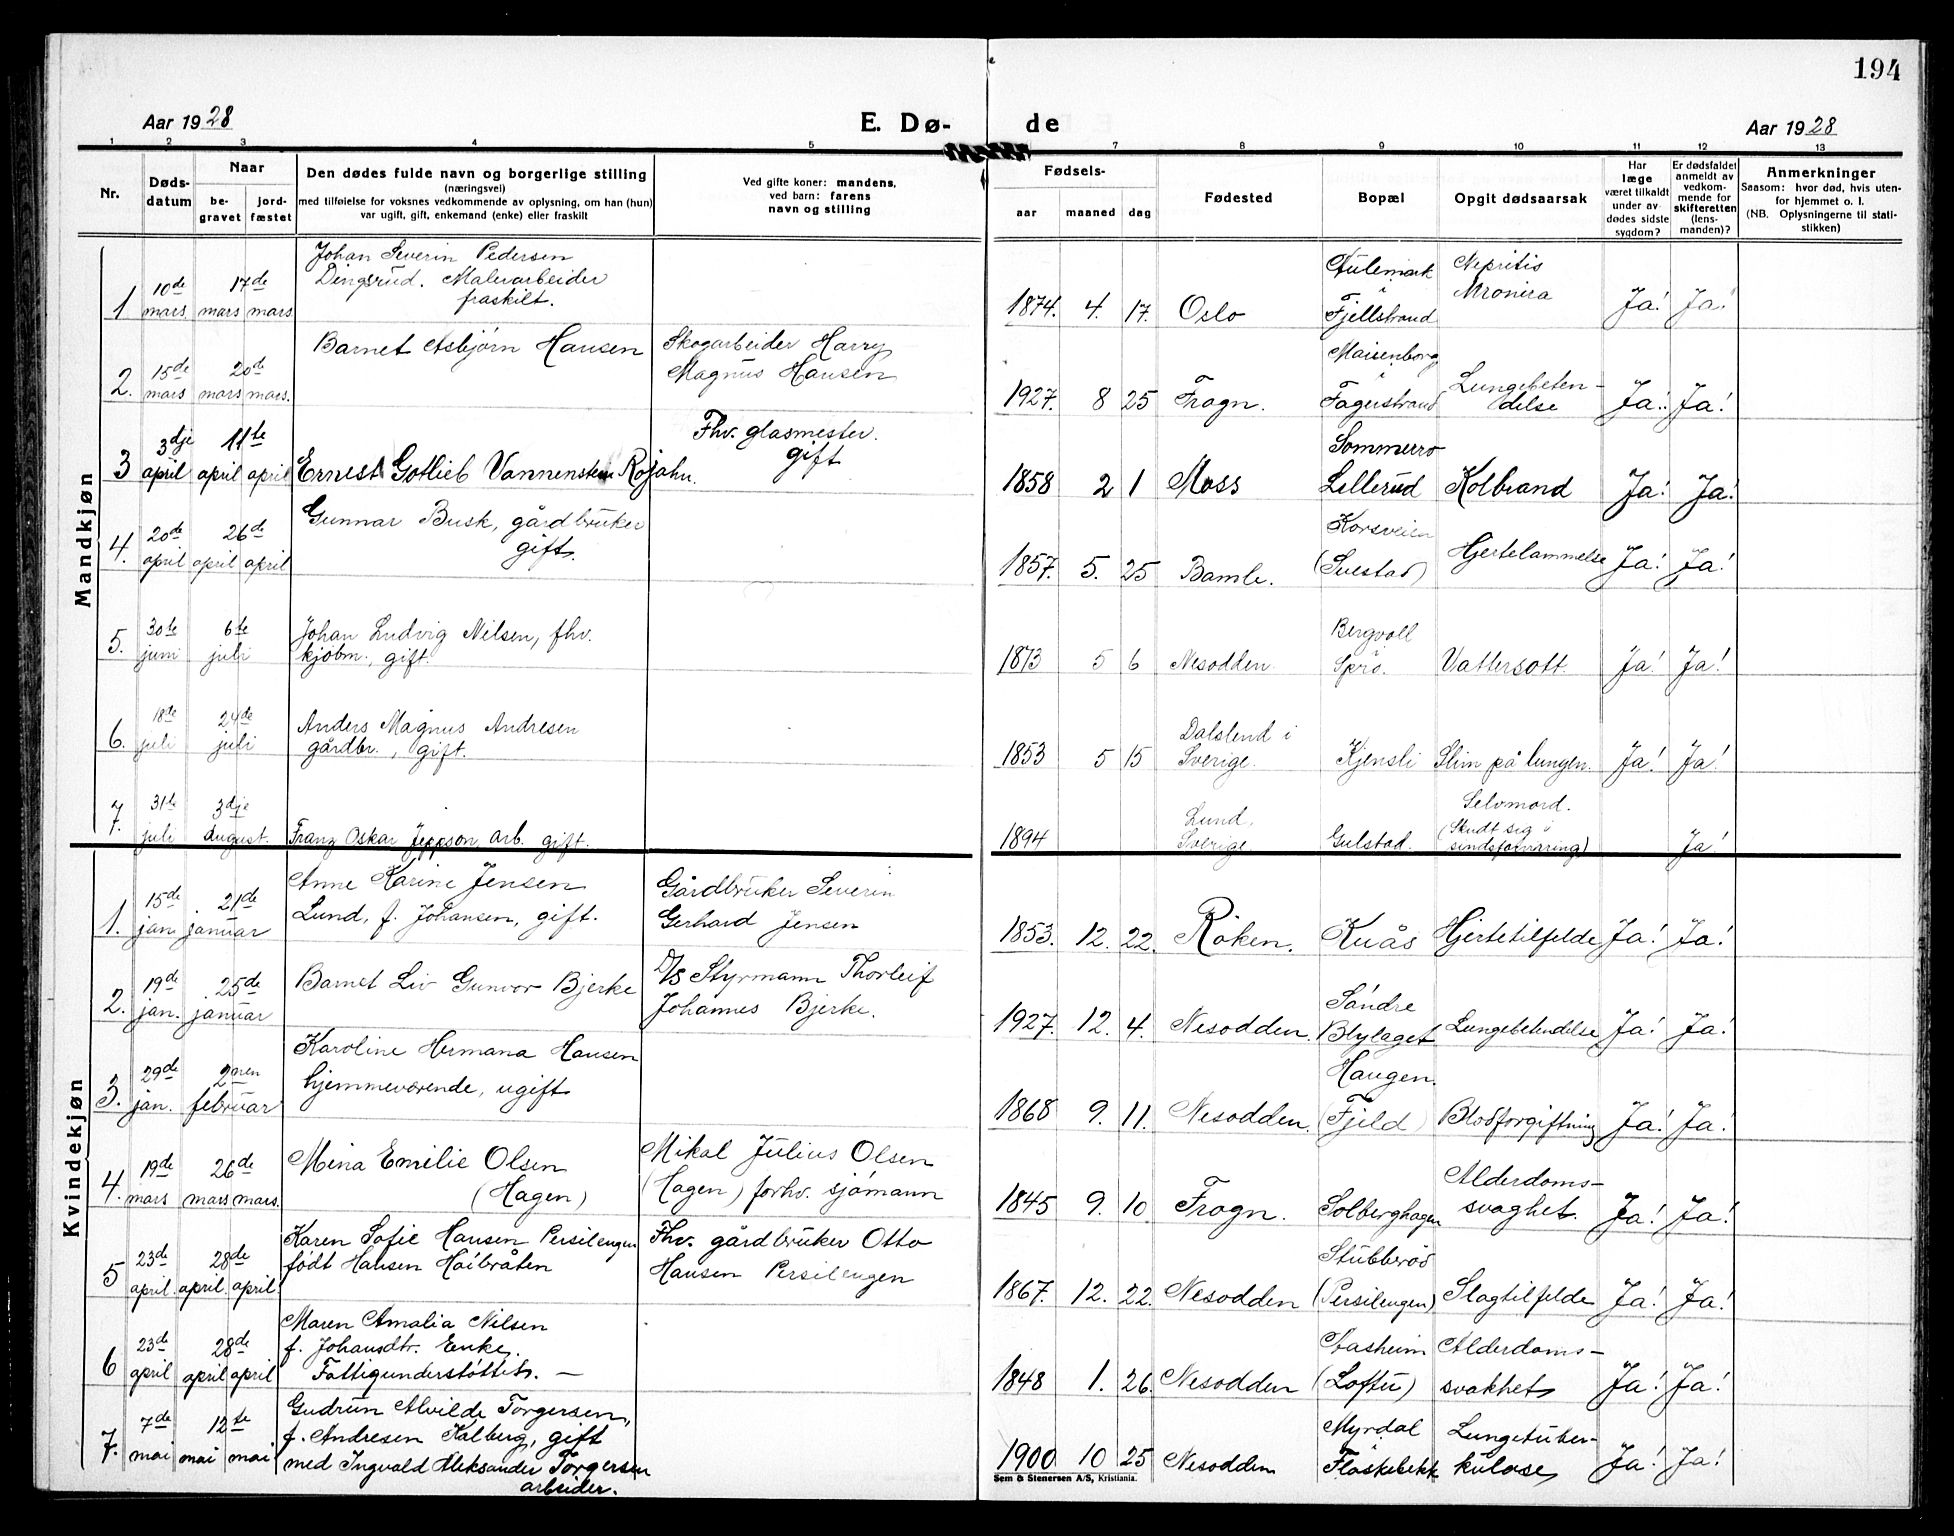 194
Aar 1928
E. Dø-
de
Aar 1928
1 2 3 4 5
7 8 9 10 11 12 13
Nr.
Døds-
datum
Naar
be-
gravet
jord-
fæstet
Den dødes fulde navn og borgerlige stilling
(næringsvei)
med tilføielse for voksnes vedkommende av oplysning, om han (hun)
var ugift, gift, enkemand (enke) eller fraskilt
Ved gifte koner: mandens,
ved barn: farens
navn og stilling
Fødsels-
aar maaned dag
Fødested
Bopæl
Opgit dødsaarsak
Har
læge
været tilkaldt
under av-
dødes sidste
sygdom?
Er dødsfaldet
anmeldt av
vedkom-
mende for
skifteretten
(lens-
manden)?
Anmerkninger
Saasom: hvor død, hvis uten-
for hjemmet o. l.
(NB. Oplysningerne til stati-
stikken)
Mandkjøn
1 10de mars 17de mars mars
Johan Severin Pedersen
Dingsrud. Malerarbeider
fraskilt.
1874. 4. 17. Oslo
Fjellstrand
Nepritis
Ja! Ja!
2. 15de mars 20de mars mars.
Barnet Asbjørn Hansen
Skogarbeider Harry
Magnus Hansen
1927. 8 25 Frogn.
Maisenborg
Fagerstrand
Lungebeten-
delse
Ja! Ja!
3 3dje april 11te april april
Ernest Gotlieb Vannenstein Rojahn.
Fhv. glasmester.
gift
1858 2 1 Moss
Sommerro
Lillerud
Kolbrand
Ja! Ja!
4. 20de april 26de april april
Gunnar Busk, gårdbruker
gift.
1857. 5. 25 Bamle.
Korsveien
(Svestad)
Hjertelammelse
Ja! Ja!
5. 30te juni 6te juli
Johan Ludvig Nilsen, fhv.
kjøbm., gift.
1873 5 6 Nesodden.
Bergvoll
Sprø.
Vattersott.
Ja! Ja!
6. 18de juli 24de juli
Anders Magnus Andresen
gårdbr., gift.
1853 5 15
Dalslend i
Sverige.
Kjensli
Slim på lungen.
Ja! Ja!
7. 31te juli 3dje august.
Franz Oskar Jeppson arb. gift.
1894
Lund.
Sverige
Gulstad.
Selvmord.
(Skudt sig i
sindsforvirring)
Ja!
Kvindekjøn
1. 15de jan 21de januar
Anne Karine Jensen
Lund, f. Johansen, gift.
Gårdbruker Severin
Gerhard Jensen
1853. 12. 22. Røken.
Knås
Hjertetilfelde
Ja! Ja!
2. 19de jan. 25de januar
Barnet Liv Gunvor Bjerke
D/S Styrmann Thorleif
Johannes Bjerke.
1927. 12. 4. Nesodden.
Søndre
Blylaget
Lungebetendelse
Ja! Ja!
3. 29de jan. 2nen februar
Karoline Hermana Hansen
hjemmeværende, ugift
1868 9. 11. Nesodden.
Haugen.
(Fjeld)
Blodforgiftning
Ja! Ja!
4. 19de mars 26de mars mars.
Mina Emilie Olsen
(Hagen)
Mikal Julius Olsen
(Hagen) forhv. sjømann
1845 9. 10. Frogn.
Solberghagen
Alderdoms-
svaghet.
Ja! Ja!
5 23de april 28de april april
Karen Sofie Hansen Persilengen
født Hansen Høibråten
Fhv. gårdbruker Otto
Hansen Persilengen
1867. 12. 22. Nesodden
Stubberød
(Persilengen)
Slagtilfelde
Ja! Ja!
6 23de april 28de april april
Maren Amalia Nilsen
f. Johansdtr. Enke.
Fattigunderstøttet. —
1848 1. 26. Nesodden
Aasheim
(Loftu)
Alderdoms-
svakhet
Ja! Ja!
7. 7de mai 12te mai mai
Gudrun Alvilde Torgersen,
f. Andresen Kalberg, gift
med Ingvald Aleksander Torgersen
arbeider.
1900 10 25 Nesodden
Myrdal
Flaskebekk
Lungetuber-
kulose
Ja! Ja!
Sem & Stenersen A/S, Kristiania.